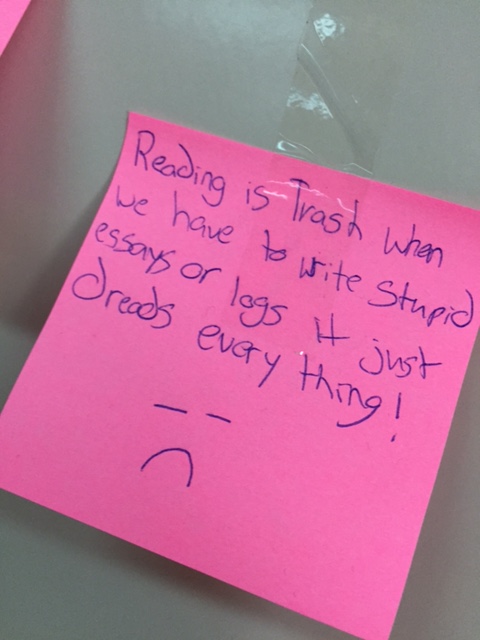 Reading is Trash when
we have to write Stupid
essays or logs it just
dreads every thing!